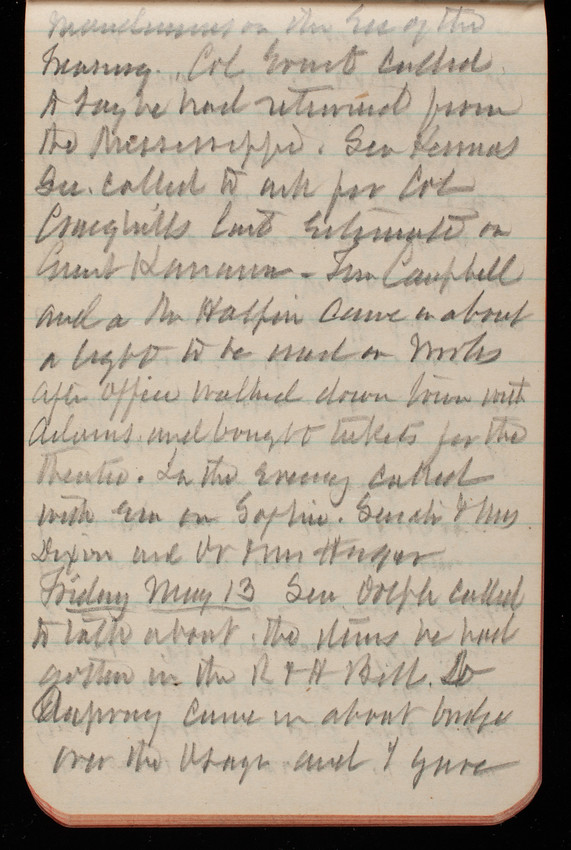 on the Sec of the
Treasury. Col Ernst called
to say he had returned from
the Mississippi. Gen Kennas
Sec. called to ask for Col
Craighills last Estimate on
Great Kanawa - Gen Campbell
and a Mr Halpin came in about
a light to be used on Works
After office walked down town with
Adams and bought tickets for the
theatre. In the Evening called
with Eva on Sophie. Senator & Mrs
Dixon and Dr & Mrs
Friday May 13 Sen Dolph called
to talk about the items he had
gotten in the R & H Bill.
came in about bridge
over the Osage and I gave